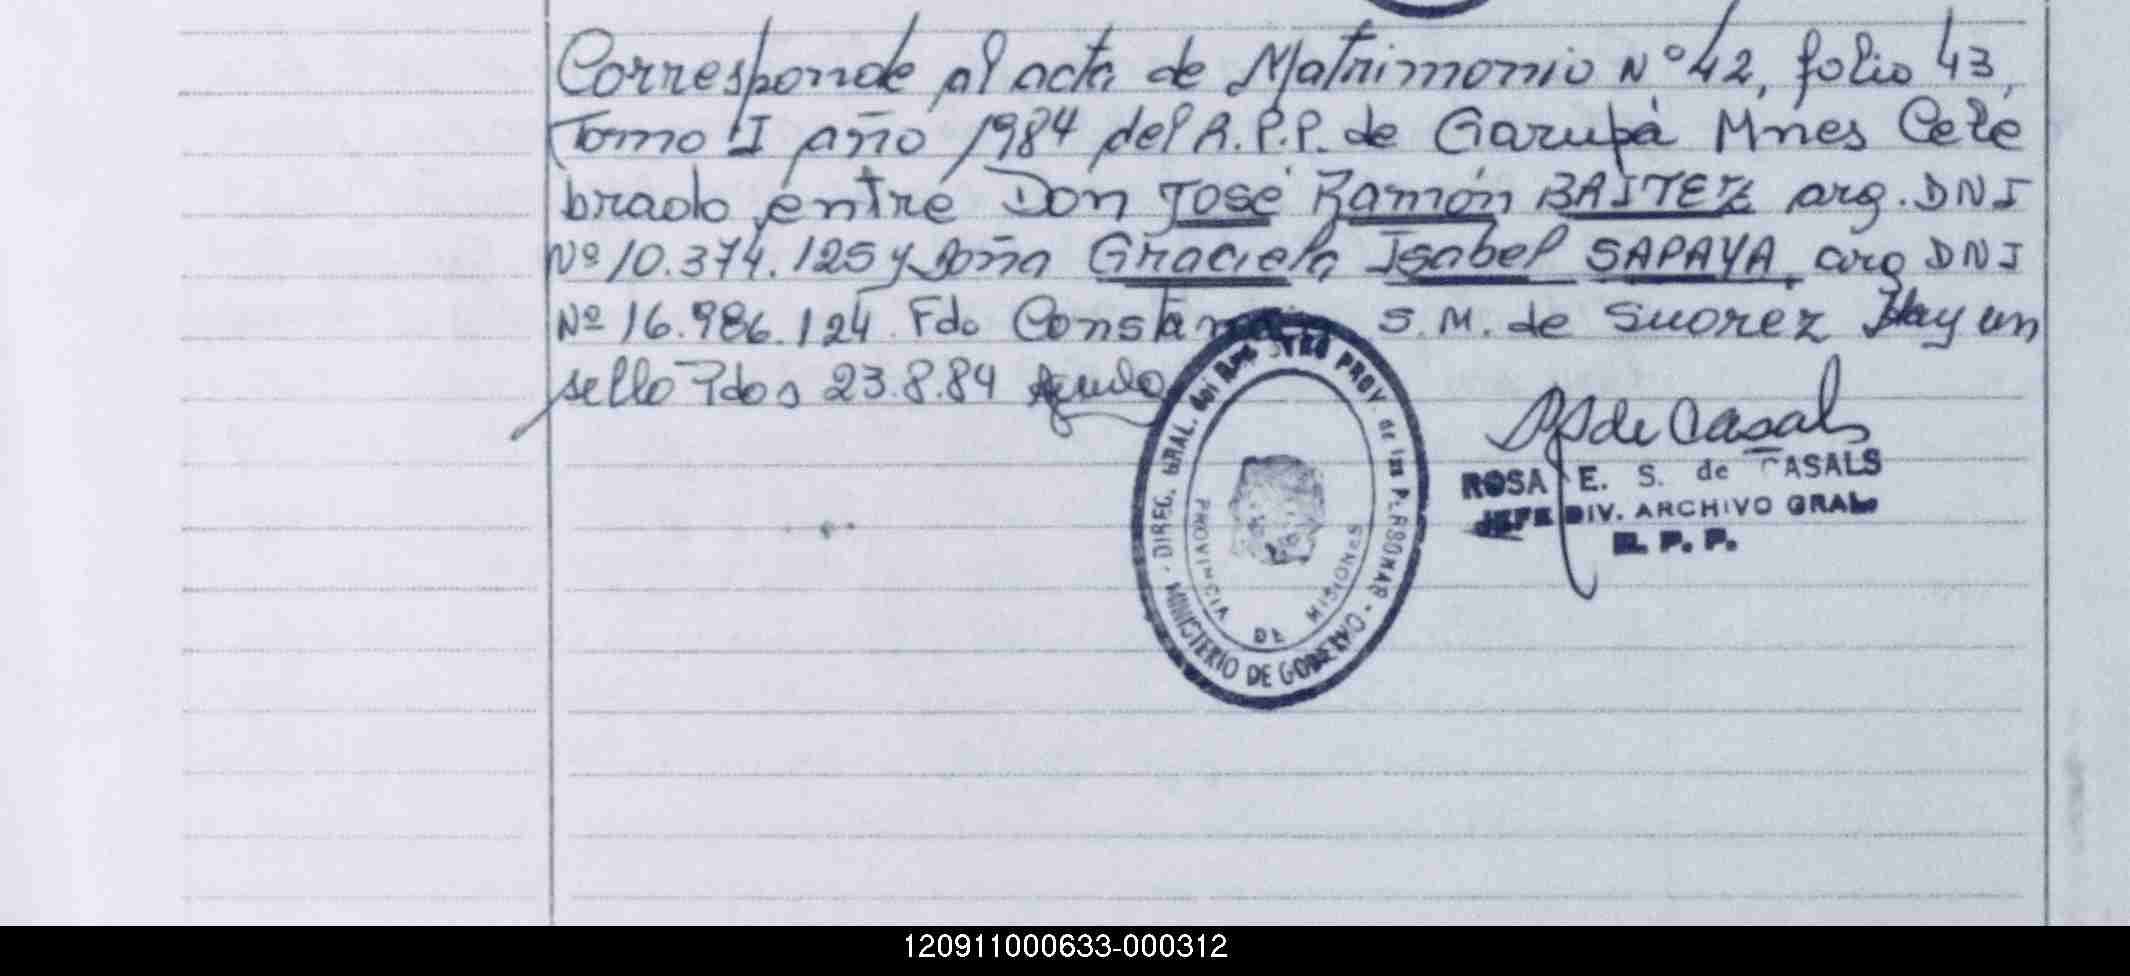 Corresponde al acta de Matrimonio Nº 42, folio 43,
Tomo I año 1984 del R.P.P. de Garupá Mnes Cele
brado entre Don José Ramón BAITEZ arg. DNI
Nº 10.374.125 y Doña Graciela Isabel SAPAYA, arg DNI
Nº 16.986.124. Fdo S.M. de Suarez Hay un
sello Pdos 23.8.84
DIREC. GRAL. del REGISTRO PROV. de las PERSONAS
PROVINCIA DE MISIONES
MINISTERIO DE GOBIERNO
de Casals
ROSA E. S. de CASALS
JEFE DIV. ARCHIVO GRAL
R. P. P.
120911000633-000312